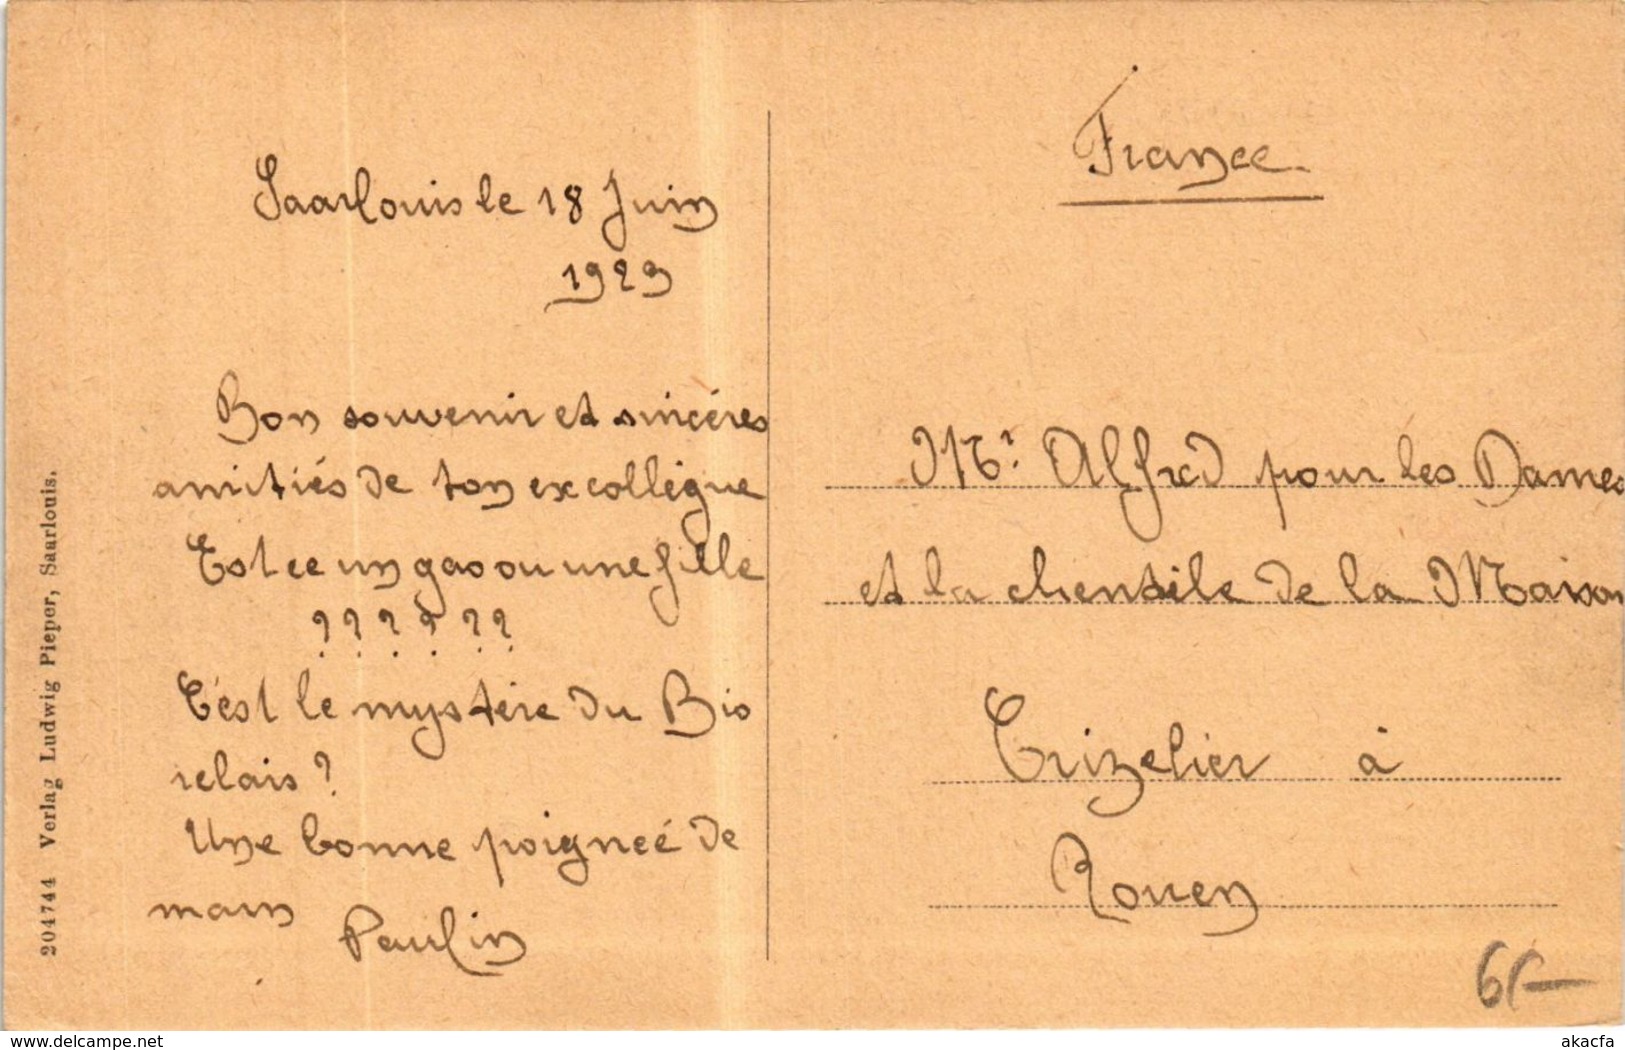 Saarlouis le 18 Juin
1929
Bon souvenir et sincéres
amitiés de ton ex collègue
Est ce un gas ou une fille
? ? ? ? ? ?
C'est le mystère du Bio
relais ?
Une bonne poigneé de
main
Paulin
204744 Verlag Ludwig Pieper, Saarlouis.
France
Mr. Alfred pour les Dames
et la clientèle de la Maison
Crizelier à
Rouen
delcampe.net
akacfa